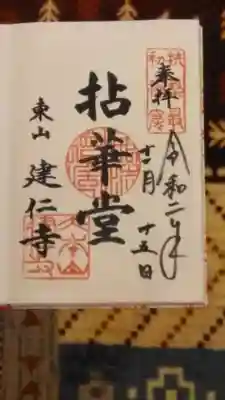 奉拝
令和二年
十一月十五日
拈華堂
東山 建仁寺